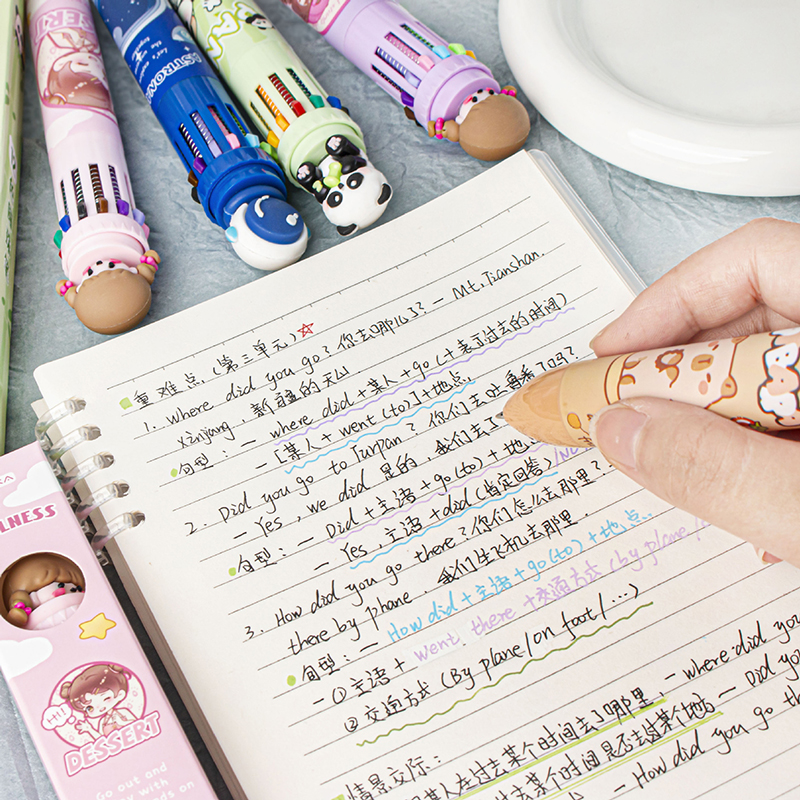 重难点(第三单元)☆
1. where did you go? 你去哪儿了? - Mt. Tianshan,
xinjiang, 新疆的天山
句型: - where did + 某人 + go (+ 表示过去的时间)
- [某人 + went (to)] + 地点
2. Did you go to Turpan? 你们去吐鲁番了吗?
- Yes, we did 是的, 我们去了
句型: - Did + 主语 + go (to) + 地
- Yes, 主语 + did (肯定回答) / No
3. How did you go there? 你们怎么去那里?
there by phane, 我们坐飞机去那里.
句型: - How did + 主语 + go (to) + 地点.
- ① 主语 + went there + 交通方式 (by plane/
② 交通方式 (By plane/on foot/…)
情景交际:
某人在过去某个时间去了哪里, - where did you
去某个时间是否去过某个地方 - Did you
- How did you go th
ASTRONA
DESSERT
LNESS
Hi!
DESSERT
Go out and